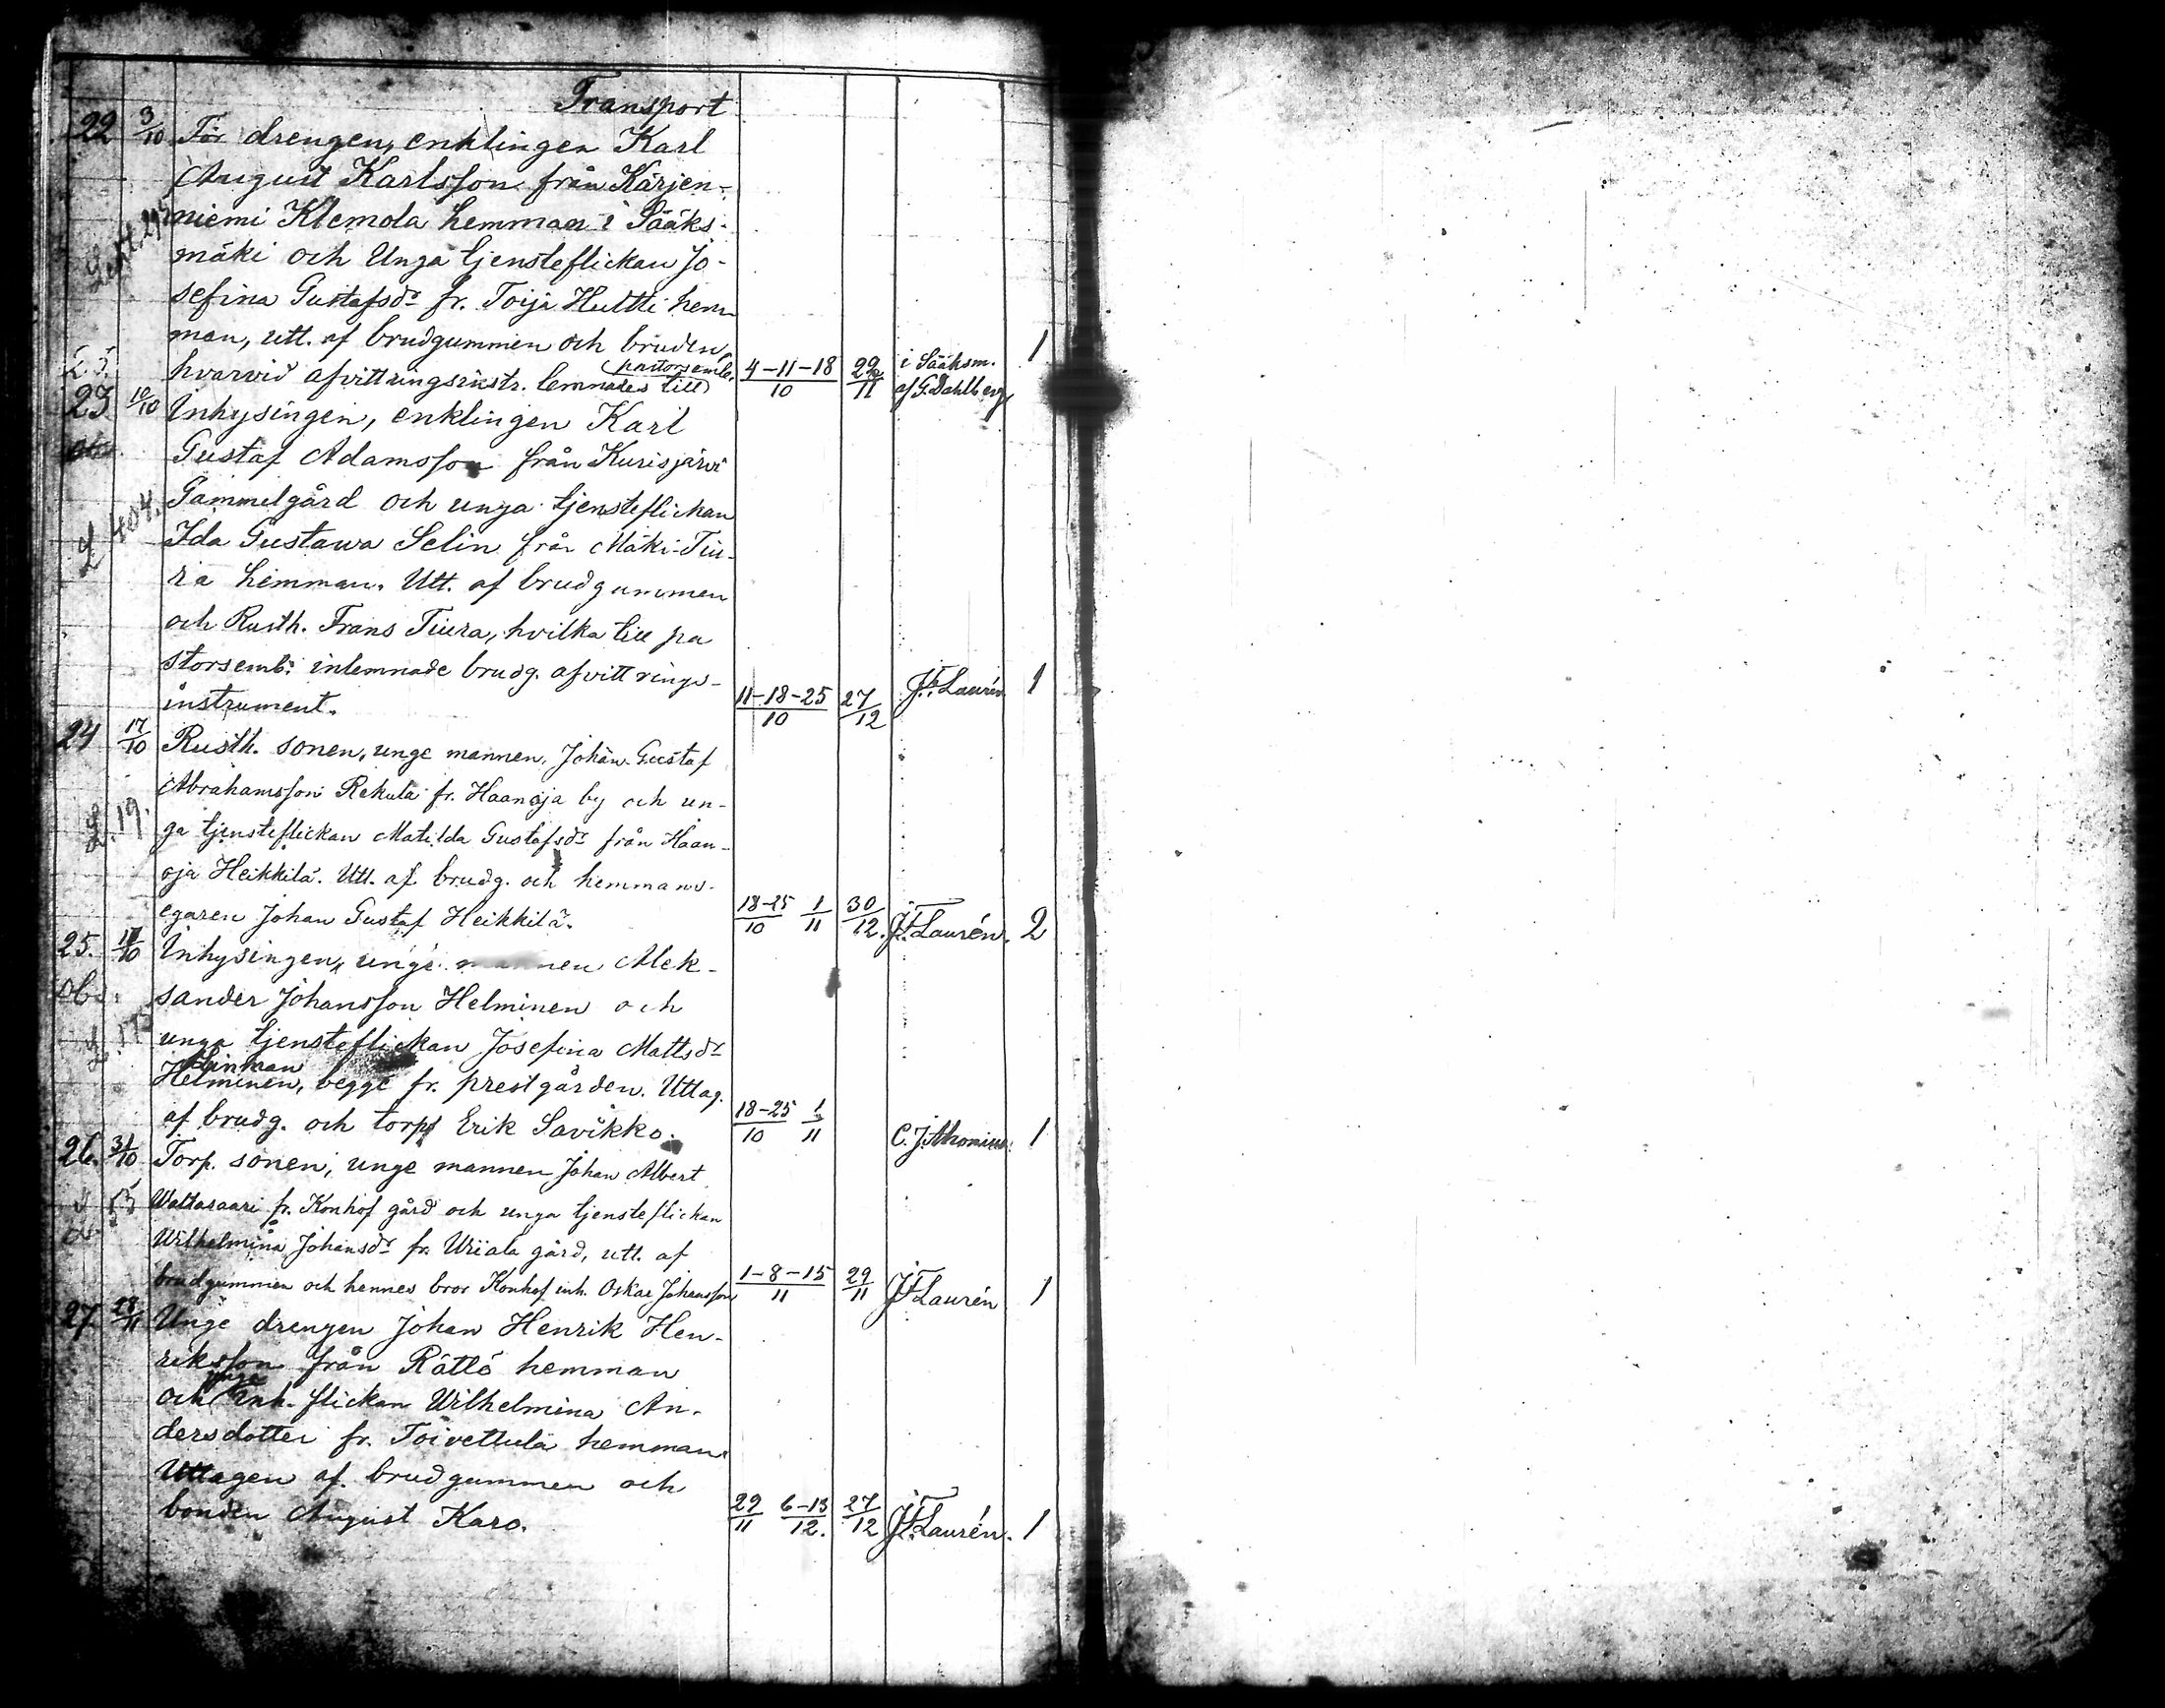 Transport
22 3/10 För drengen, enklingen Karl
August Karlsson från Kärjen-
niemi Klemola hemman i Sääks-
mäki och Unga tjensteflickan Jo-
sefina Gustafsdr fr. Toija Hultti hem-
man, utt. af brudgummen och bruden, 1
hvarvid afvittringsinstr. lemnades till pastorsemb. 4-11-18/10 29/11 i Sääksm. af G. Dahlberg
23 10/10 Inhysingen, enklingen Karl
Gustaf Adamsson från Kurisjärvi
Gammelgård och unga tjensteflickan
404.
Ida Gustawa Selin från Mäki-Tiu-
ra hemman. Utt. af brudgummen
och Rusth. Frans Tiura, hvilka till pa
storsemb: inlemnade brudg. afvittrings-
instrument. 11-18-25/10 27/12 J.F. Laurén 1
24 17/10 Rusth. sonen, unge mannen, Johan Gustaf
Abrahamsson Rekula fr. Haanoja by och un-
19.
ga tjensteflickan Matilda Gustafsdr från Haan-
oja Heikkilä. Utt. af brudg. och hemmans-
egaren Johan Gustaf Heikkilä. 18-25/10 1/11 30/12. J.F. Laurén. 2
25. 17/10 Inhysingen, unge mannen Alek-
obs. sander Johansson Helminen och
unga tjensteflickan Josefina Mattsdr
Linman
Helminen, begge fr. prestgården. Uttag.
af brudg. och torp Erik Savikko. 18-25/10 1/11 C. J. 1
26. 31/10 Torp. sonen, unge mannen Johan Albert
Wattasaari fr. Konhof gård och unga tjensteflickan
Wilhelmina Johansdr fr. Uriala gård, utt. af
brudgummen och hennes bror Konhof inh. Oskar Johansson 1-8-15/11 29/11 J.F. Laurén 1
27. 28/11 Unge drengen Johan Henrik Hen-
riksson från Rättö hemman
unga
och inh. flickan Wilhelmina An-
dersdotter fr. Toivettula hemman.
Uttagen af brudgummen och
bonden August Karo. 29/11 6-13/12. 27/12 J.F. Laurén. 1